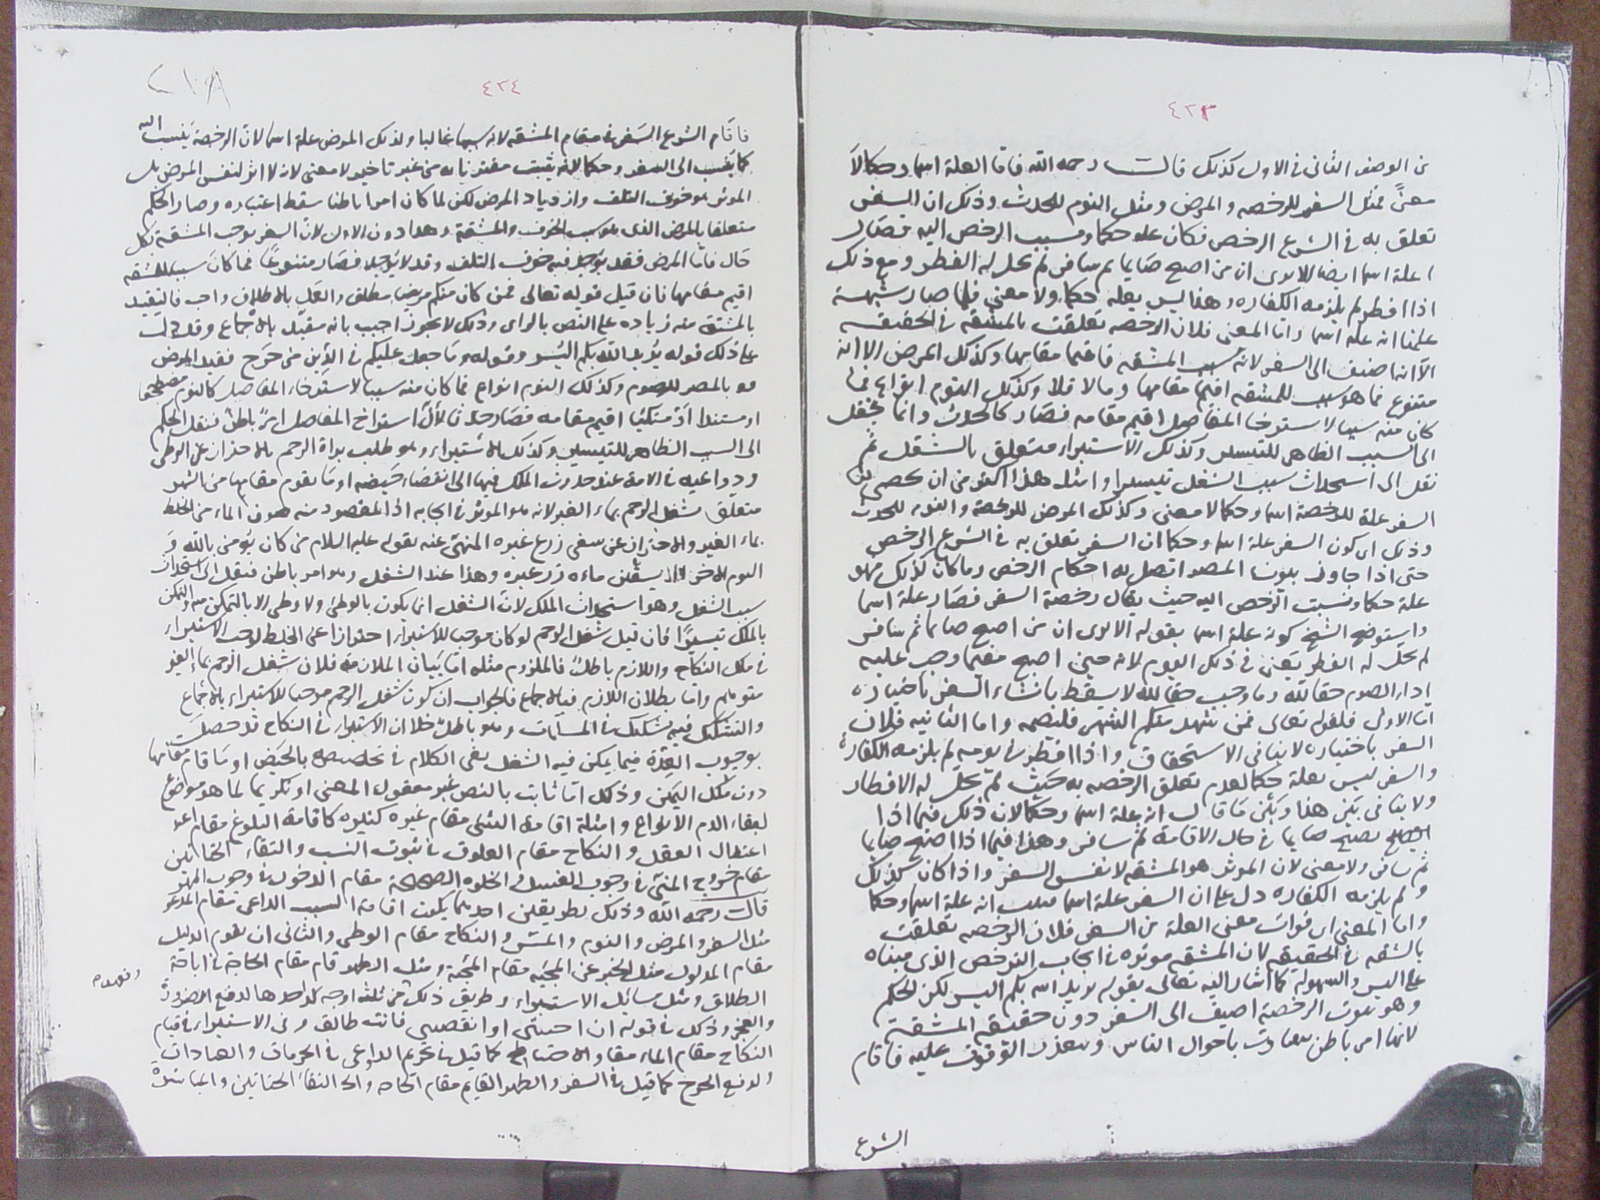 ٤٢٣
من الوصف الثاني في الاول كذلك قال رحمه الله فاما العلة اسما وحكما لا
معنى فمثل السفر للرخصه والمرض ومثل النوم للحدث وذلك ان السفر
تعلق به في الشرع الرخص فكان علة حكما ونسبت الرخص اليه فصار
علة اسما ايضا الا ترى ان من اصبح صايما ثم سافر لم يحل له الفطر ومع ذلك
اذا افطر لم يلزمه الكفاره وهذا ليس بعلة حكما ولا معنى فلما صار شبهة
علمنا انه علة اسما واما المعنى فلان الرخصه تعلقت بالمشقه في الحقيقه
الا انها اضيف الى السفر لانه سبب المشقه فاقيم مقامها وكذلك المرض الا انه
متنوع فما هو سبب للمشقه اقيم مقامها وما لا فلا وكذلك النوم انواع فما
كان منه سببا لاسترخا المفاصل اقيم مقامه فصار كالحدث وانما ينقل
الى السبب الظاهر للتيسير وكذلك الاستبراء متعلق بالشغل ثم
نقل الى استحداث سبب الشغل تيسيرا وامثلة هذا اكثر من ان يحصى
السفر علة للرخصة اسما وحكما لا معنى وكذلك المرض للرخصة والنوم للحدث
وذلك ان كون السفر علة اسما وحكما ان السفر تعلق به في الشرع الرخص
حتى اذا جاوز بيوت المصر اتصل به احكام الرخص وما كان كذلك فهو
علة حكما ونسبت الرخص اليه حيث يقال رخصة السفر فصار علة اسما
واستوضح الشيخ كونه علة اسما بقوله الا ترى ان من اصبح صايما ثم سافر
لم يحل له الفطر يعنى في ذلك اليوم لانه حين اصبح مقيما وجب عليه
اداء الصوم حقا لله وما وجب حقا لله لا يسقط بانشاء السفر باختياره
اما الاولى فلقوله تعالى فمن شهد منكم الشهر فليصمه واما الثانيه فلان
السفر باختياره لا ينافي الاستحقاق واذا افطر في يومه لم يلزمه الكفارة
والسفر ليس بعلة حكما لعدم تعلق الرخصه به حيث لم يحل له الافطار
ولا ينافي بين هذا وبين ما قال انه علة اسما وحكما لان ذلك فيما اذا
يصبح صايما في حال الاقامة ثم سافر وهذا فيما اذا اصبح صايما
ثم سافر ولا معنى لان الموثر هو المشقه لا نفس السفر واذا كان كذلك
ولم يلزمه الكفاره دل على ان السفر علة اسما انه علة اسما وحكما
واما المعنى ان فوات معنى العلة من السفر فلان الرخصه تعلقت
بالمشقه في الحقيقه لان المشقه موثره في ايجاب الترخص الذي مبناه
على اليسر والسهوله كما اشار اليه تعالى بقوله يريد الله بكم اليسر لكن الحكم
وهو ثبوت الرخصة اضيف الى السفر دون حقيقة المشقة
لانها امر باطن يتفاوت باحوال الناس ويتعذر الوقوف عليه فاقام
الشرع
٤٢٤
٢١٨
فاقام الشرع السفر في مقام المشقه لانه سببها غالبا وكذلك المرض علة اسما لان الرخصة ينسب اليه
كما ينسب الى السفر وحكما لانه يثبت مقترنا به من غير تاخير لا معنى لانه لا اثر لنفس المرض بل
الموثر هو خوف التلف وازدياد المرض لكن لما كان امرا باطنا سقط اعتباره وصار الحكم
متعلقا بالمرض الذي هو سبب الخوف والمشقة وهذا دون الاول لان السفر يوجب المشقة بكل
حال فاما المرض فقد يوجد فيه خوف التلف وقد لا يوجد فصار متنوعا فما كان سببا للمشقه
اقيم مقامها فان قيل قوله تعالى فمن كان منكم مريضا مطلق والعمل بالاطلاق واجب فالتقييد
بالمشقة منه زياده على النص بالراى وذلك لا يجوز اجيب بانه مقيد بالاجماع وقد دل
على ذلك قوله يريد الله بكم اليسر وقوله وما جعل عليكم في الدين من حرج فقيد المرض
هو بالمضر للصوم وكذلك النوم انواع فما كان منه سببا لاسترخاء المفاصل كالنوم مضطجعا
او مستندا او متكيا اقيم مقامه فصار حدثا لان استرخاء المفاصل امر باطن فنقل الحكم
الى السبب الظاهر للتيسير وكذلك الاستبراء وهو طلب براة الرحم بالاحتراز عن الوطى
ودواعيه في الامة عند حدوث الملك فيها الى انقضاء حيضه او ما يقوم مقامها من الشهر
متعلق بشغل الرحم بماء الغير لانه هو الموثر في ايجابه اذ المقصود منه صون الماء من الخلط
بماء الغير والاحتراز عن سقى زرع غيره المنهى عنه بقوله عليه السلام من كان يومن بالله و
اليوم الاخر فلا يسقين ماءه زرع غيره وهذا عند الشغل وهو امر باطن فنقل الى استحداث
سبب الشغل وهو استحداث الملك لان الشغل انما يكون بالوطى ولا وطى الا بالتمكن منه والتمكن
بالملك تيسيرا فان قيل شغل الرحم لو كان موجبا للاستبراء احترازا عن الخلط لوجب الاستبراء
في ملك النكاح واللازم باطل فالملزوم مثله اما بيان الملازمه فلان شغل الرحم بماء الغير
متوهم واما بطلان اللازم فبالاجماع فالجواب ان كون شغل الرحم موجبا للاستبراء بالاجماع
والتشكيك فيه تشكيك في المسلمات وهو باطل خلا ان الاستبراء في النكاح قد حصل
بوجوب العدة فيما يمكن فيه الشغل بقى الكلام في تخصيصه بالحيض او ما قام مقامها
دون ملك اليمين وذلك اما ثابت بالنص غير معقول المعنى او تكريما لما هو موضوع
لبقاء الدم الانواع وامثلة اقامة الشى مقام غيره كثيره كاقامة البلوغ مقام
اعتدال العقل والنكاح مقام العلوق في ثبوت النسب والتقاء الختانين
مقام خروج المنى في وجوب الغسل والخلوه الصحيحة مقام الدخول في وجوب المهر
قال رحمه الله وذلك بطريقين احدهما يكون اقامة السبب الداعى مقام المدعو
مثل السفر والمرض والنوم والمس والنكاح مقام الوطى والثانى ان يقوم الدليل
مقام المدلول مثل الخبر عن المحبه مقام المحبة ومثل الطهر قام مقام الحاجة في اباحة
الطلاق ومثل مسائل الاستبراء وطريق ذلك من ثلثة اوجه احدها لدفع الضرورة
والعجز وذلك في قوله ان احببتنى او ابغضتنى فانت طالق وفي الاستبراء في قيام
النكاح مقام الماء مقام والاحتياط كما قيل في تحريم الدواعى في الحرمات والعبادات
ولدفع الحرج كما قيل في السفر والطهر القايم مقام الحاجه والتقاء الختانين والمباشرة